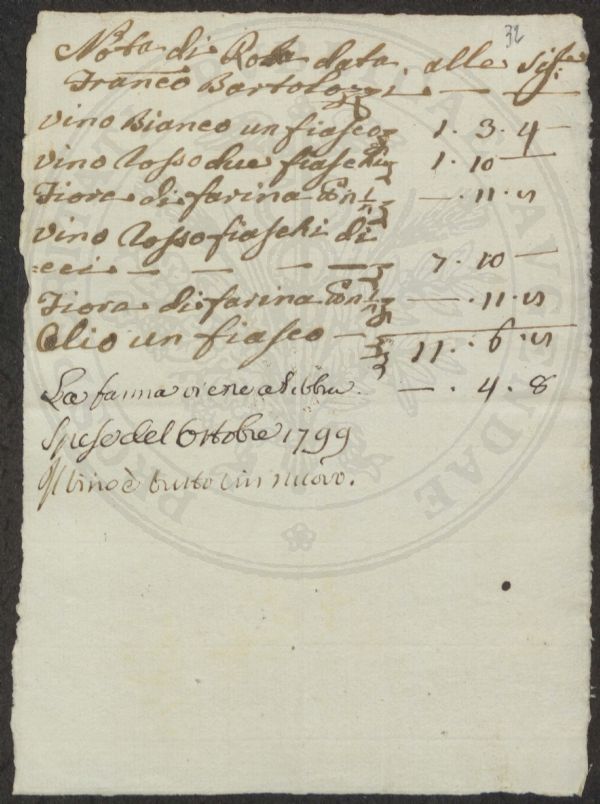 32
Nota di Roba data alle Sig.re
Franco Bartolozzi
Vino Bianco un fiasco 1 . 3 . 4
Vino Rosso due fiaschi 1 . 10 —
Fiore di farina — . 11 . 5
Vino Rosso fiaschi di
=eci — — — 7 . 10 —
Fiore di farina — . 11 . 5
Olio un fiasco — 11 . 6 . 5
La farina viene a libbra . — . 4 . 8
Spese del Ottobre 1799
Il vino è tutto in nuovo.